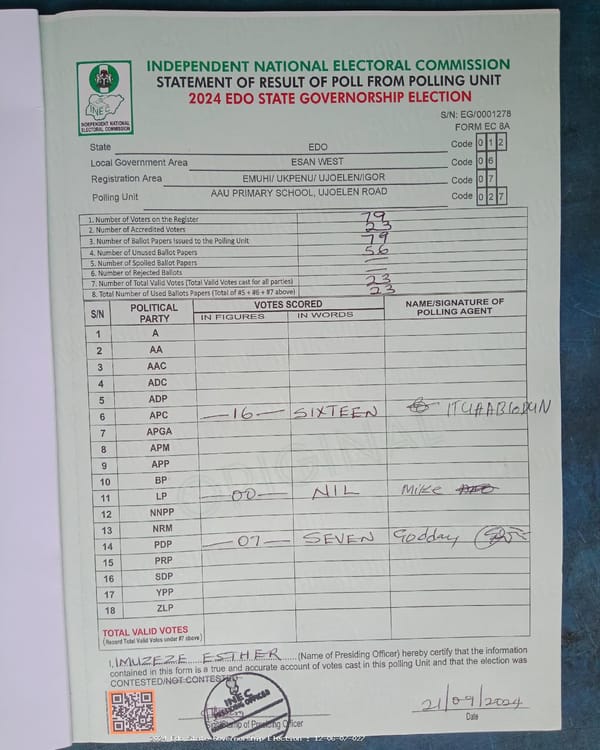 INDEPENDENT NATIONAL ELECTORAL COMMISSION
STATEMENT OF RESULT OF POLL FROM POLLING UNIT
2024 EDO STATE GOVERNORSHIP ELECTION
INEC
INDEPENDENT NATIONAL
ELECTORAL COMMISSION
S/N: EG/0001278
FORM EC 8A
State EDO Code 0 1 2
Local Government Area ESAN WEST Code 0 6
Registration Area EMUHI/ UKPENU/ UJOELEN/IGOR Code 0 7
Polling Unit AAU PRIMARY SCHOOL, UJOELEN ROAD Code 0 2 7
1. Number of Voters on the Register 79
2. Number of Accredited Voters 23
3. Number of Ballot Papers Issued to the Polling Unit 79
4. Number of Unused Ballot Papers 56
5. Number of Spoiled Ballot Papers —
6. Number of Rejected Ballots —
7. Number of Total Valid Votes (Total Valid Votes cast for all parties) 23
8. Total Number of Used Ballots Papers (Total of #5 + #6 + #7 above) 23
S/N POLITICAL PARTY VOTES SCORED NAME/SIGNATURE OF POLLING AGENT
IN FIGURES IN WORDS
1 A
2 AA
3 AAC
4 ADC
5 ADP
6 APC —16— SIXTEEN
7 APGA
8 APM
9 APP
10 BP
11 LP —00— NIL Mike
12 NNPP
13 NRM
14 PDP —07— SEVEN Godday
15 PRP
16 SDP
17 YPP
18 ZLP
ORIGINAL
TOTAL VALID VOTES
(Record Total Valid Votes under #7 above)
I, IMUZEZE ESTHER (Name of Presiding Officer) hereby certify that the information
contained in this form is a true and accurate account of votes cast in this polling Unit and that the election was
CONTESTED/NOT CONTESTED
INEC
PRESIDING OFFICER
Signature/Stamp of Presiding Officer
21/09/2024
Date
2024 Edo State Governorship Election : 12-06-07-027